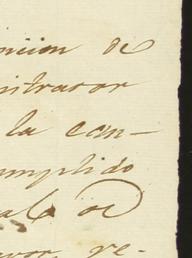 ncion de
nitrador
la con-
umplido
al de
vor, re-